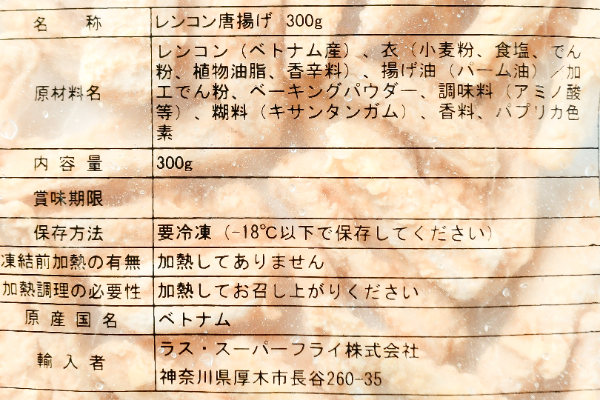 名称 レンコン唐揚げ 300g
原材料名 レンコン（ベトナム産）、衣（小麦粉、食塩、でん
粉、植物油脂、香辛料）、揚げ油（パーム油）／加
工でん粉、ベーキングパウダー、調味料（アミノ酸
等）、糊料（キサンタンガム）、香料、パプリカ色
素
内容量 300g
賞味期限
保存方法 要冷凍（-18℃以下で保存してください）
凍結前加熱の有無 加熱してありません
加熱調理の必要性 加熱してお召し上がりください
原産国名 ベトナム
輸入者 ラス・スーパーフライ株式会社
神奈川県厚木市長谷260-35